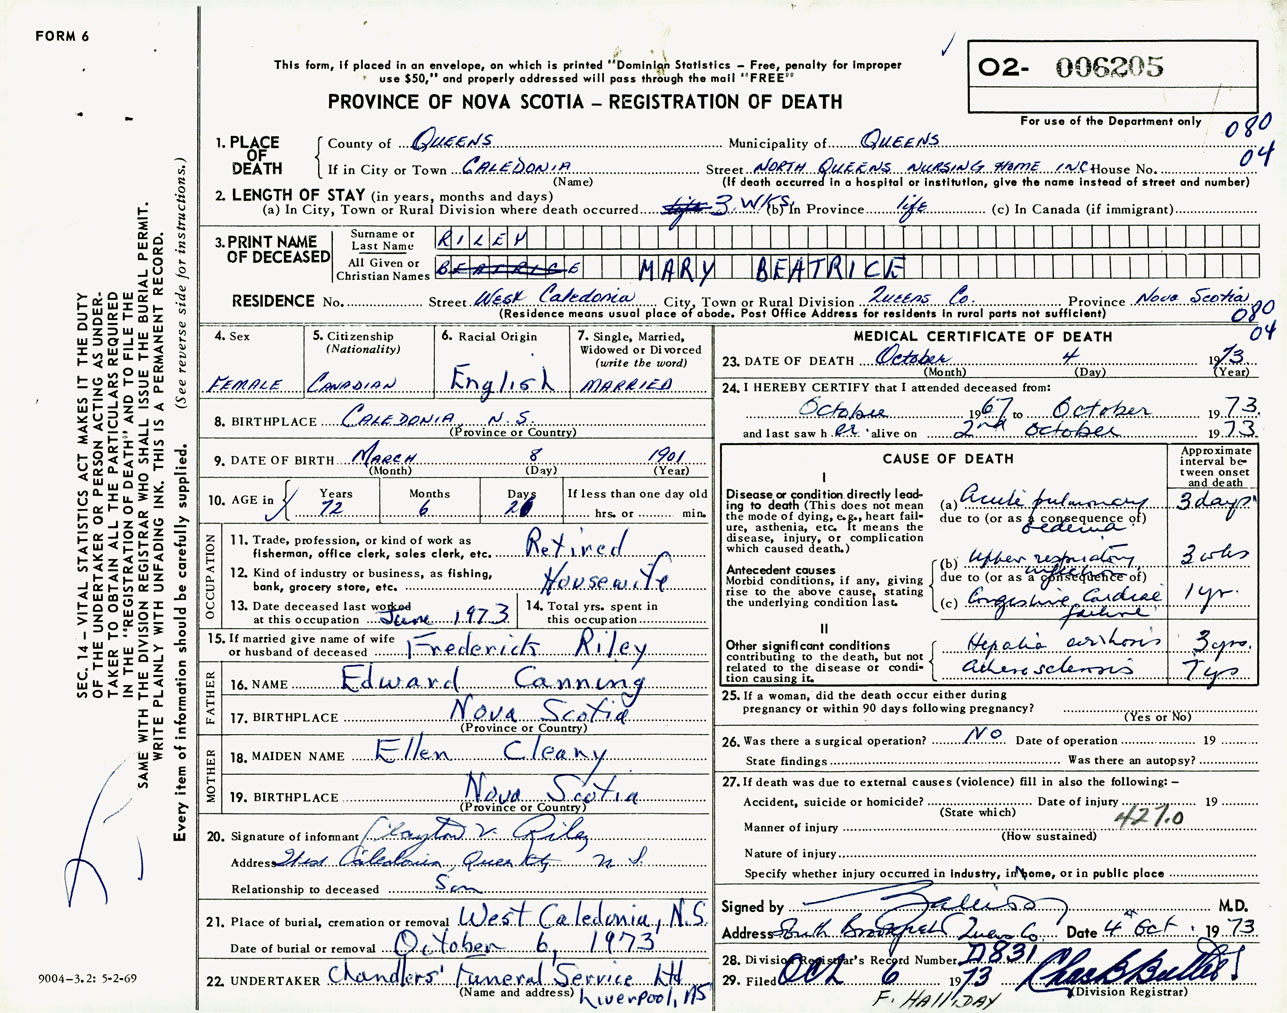 FORM 6
This form, if placed in an envelope, on which is printed "Dominion Statistics – Free, penalty for improper
use $50," and properly addressed will pass through the mail "FREE"
PROVINCE OF NOVA SCOTIA – REGISTRATION OF DEATH
O2- 006205
For use of the Department only
080
04
1. PLACE OF DEATH
County of QUEENS Municipality of QUEENS
If in City or Town CALEDONIA Street NORTH QUEENS NURSING HOME INC House No.
(Name) (If death occurred in a hospital or institution, give the name instead of street and number)
2. LENGTH OF STAY (in years, months and days)
(a) In City, Town or Rural Division where death occurred life 3 WKS. (b) In Province life (c) In Canada (if immigrant)
3. PRINT NAME OF DECEASED
Surname or Last Name RILEY
All Given or Christian Names BEATRICE MARY BEATRICE
RESIDENCE No. Street West Caledonia City, Town or Rural Division Queens Co. Province Nova Scotia
(Residence means usual place of abode. Post Office Address for residents in rural parts not sufficient)
080
04
4. Sex FEMALE
5. Citizenship (Nationality) CANADIAN
6. Racial Origin English
7. Single, Married, Widowed or Divorced (write the word) MARRIED
8. BIRTHPLACE CALEDONIA, N.S.
(Province or Country)
9. DATE OF BIRTH MARCH 8 1901
(Month) (Day) (Year)
10. AGE in Years 72 Months 6 Days 26 If less than one day old hrs. or min.
OCCUPATION
11. Trade, profession, or kind of work as fisherman, office clerk, sales clerk, etc. Retired
12. Kind of industry or business, as fishing, bank, grocery store, etc. Housewife
13. Date deceased last worked at this occupation June 1973
14. Total yrs. spent in this occupation
15. If married give name of wife or husband of deceased Frederick Riley
FATHER
16. NAME Edward Canning
17. BIRTHPLACE Nova Scotia
(Province or Country)
MOTHER
18. MAIDEN NAME Ellen Cleary
19. BIRTHPLACE Nova Scotia
(Province or Country)
20. Signature of informant Clayton V. Riley
Address West Caledonia, Queens Cty N S
Relationship to deceased Son
21. Place of burial, cremation or removal West Caledonia, N.S.
Date of burial or removal October 6, 1973
22. UNDERTAKER Chandlers' Funeral Service Ltd
(Name and address) Liverpool, NS
MEDICAL CERTIFICATE OF DEATH
23. DATE OF DEATH October 4 1973
(Month) (Day) (Year)
24. I HEREBY CERTIFY that I attended deceased from:
October 1967 to October 1973
and last saw h er alive on 2nd October 1973
CAUSE OF DEATH
Approximate interval between onset and death
I
Disease or condition directly leading to death (This does not mean the mode of dying, e.g., heart failure, asthenia, etc. It means the disease, injury, or complication which caused death.)
(a) Acute pulmonary oedema 3 days
due to (or as a consequence of)
Antecedent causes
Morbid conditions, if any, giving rise to the above cause, stating the underlying condition last.
(b) Upper respiratory infection 3 wks
due to (or as a consequence of)
(c) Congestive Cardiac failure 1 yr.
II
Other significant conditions
contributing to the death, but not related to the disease or condition causing it.
Hepatic cirrhosis 3 yrs.
Atherosclerosis 7 yrs
25. If a woman, did the death occur either during
pregnancy or within 90 days following pregnancy?
(Yes or No)
26. Was there a surgical operation? No Date of operation 19
State findings Was there an autopsy?
27. If death was due to external causes (violence) fill in also the following: –
Accident, suicide or homicide? Date of injury 19
(State which)
427.0
Manner of injury
(How sustained)
Nature of injury
Specify whether injury occurred in industry, in home, or in public place
Signed by M.D.
Address South Brookfield Queens Co Date 4th Oct. 1973
28. Division Registrar's Record Number D831
29. Filed Oct 6 1973
(Division Registrar)
F. HALLIDAY
SEC. 14 – VITAL STATISTICS ACT MAKES IT THE DUTY
OF THE UNDERTAKER OR PERSON ACTING AS UNDER-
TAKER TO OBTAIN ALL THE PARTICULARS REQUIRED
IN THE "REGISTRATION OF DEATH" AND TO FILE THE
SAME WITH THE DIVISION REGISTRAR WHO SHALL ISSUE THE BURIAL PERMIT.
WRITE PLAINLY WITH UNFADING INK. THIS IS A PERMANENT RECORD.
Every item of information should be carefully supplied. (See reverse side for instructions.)
9004–3.2: 5-2-69